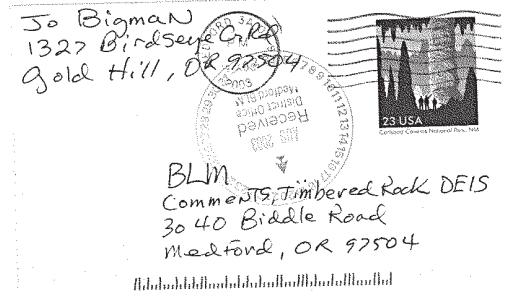 Jo Bigman
1327 Birdseye Cr Rd
Gold Hill, OR 97504
PM
2003
23 USA
Carlsbad Caverns National Park, NM
Received
District Office
Medford BLM
AUG
2003
7 8 9 10 11 12 13 14 15 16 17
BLM
Comments, Timbered Rock DEIS
3040 Biddle Road
Medford, OR 97504